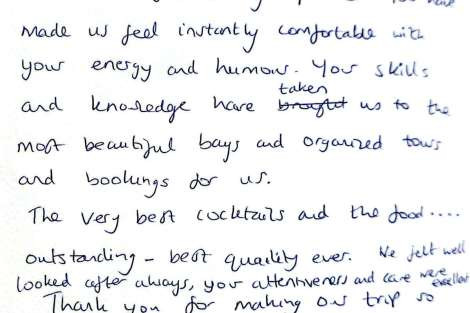 made us feel instantly comfortable with
your energy and humour. Your skills
taken
and knowledge have brought us to the
most beautiful bays and organized tours
and bookings for us.
The very best cocktails and the food....
outstanding - best quality ever. We felt well
looked after always, your attentiveness and care were excellent
Thank you for making our trip so